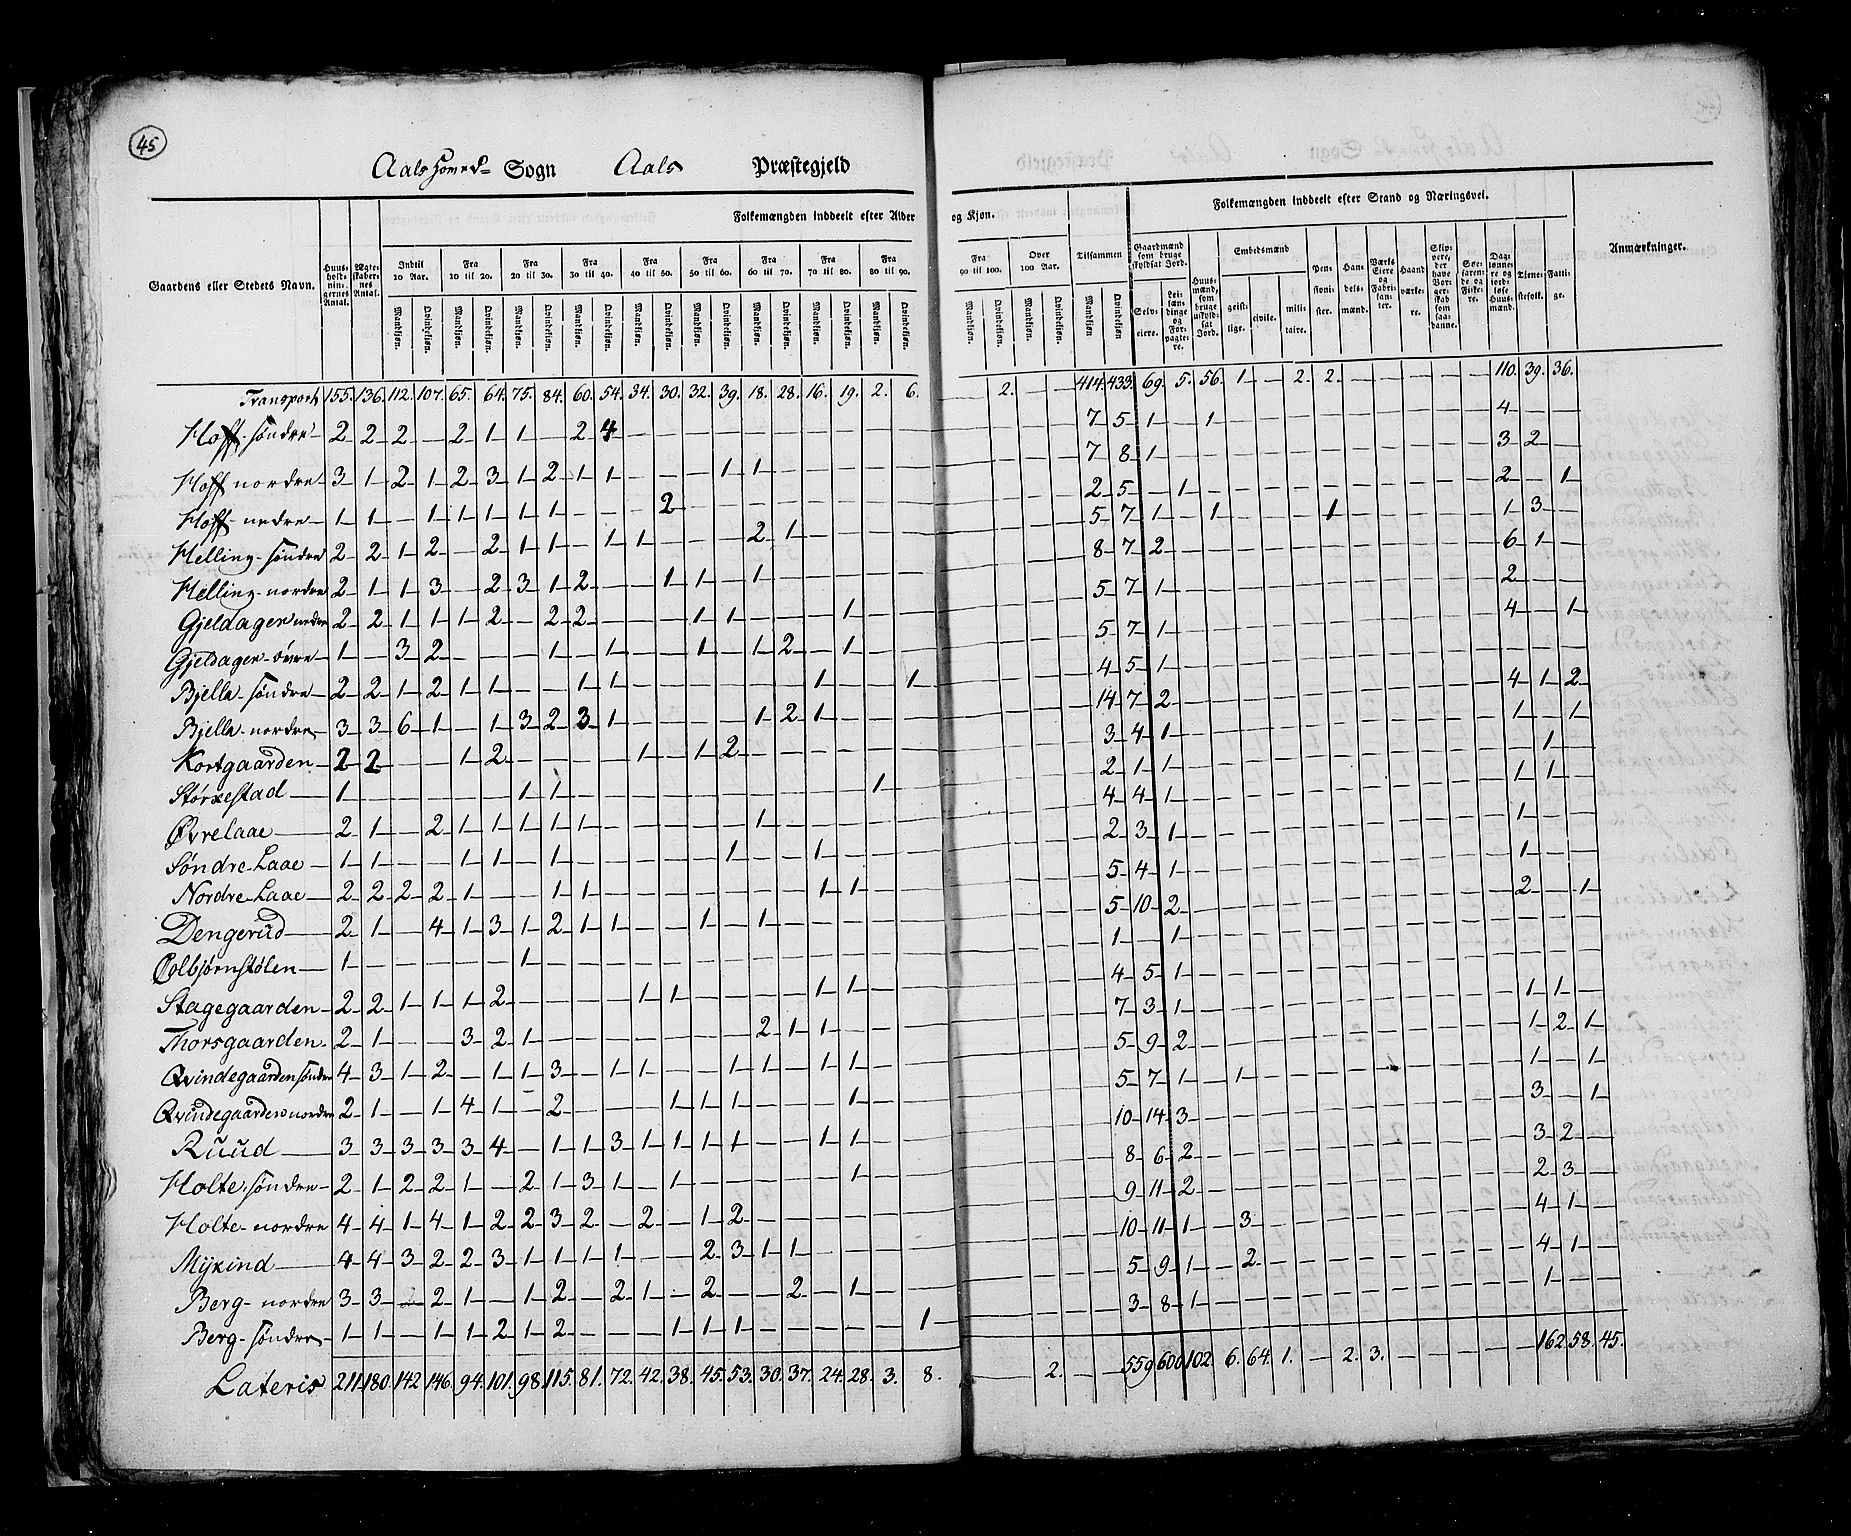 45
Aals Hoved- Sogn Aals Præstegjeld
Gaardens eller Stedets Navn.
Huusholdningernes Antal.
Ægteskabernes Antal.
Folkemængden inddeelt efter Alder og Kjøn.
Indtil 10 Aar. Fra 10 til 20. Fra 20 til 30. Fra 30 til 40. Fra 40 til 50. Fra 50 til 60. Fra 60 til 70. Fra 70 til 80. Fra 80 til 90. Fra 90 til 100. Over 100 Aar. Tilsammen
Mandkjøn. Qvindekjøn.
Folkemængden inddeelt efter Stand og Næringsvei.
Gaardmænd som bruge skyldsat Jord.
Selveiere. Leilændinge og Forpagtere.
Huusmænd, som bruge uskyldsat Jord.
Embedsmænd
geistlige. civile. militaire.
Pensionister. Handelsmænd. Værks Eiere og Fabrikanter. Haandværkere. Skippere, der have Borgerskab som saadanne. Søefarende og Fiskere. Daglønnere og jordløse Huusmænd. Tjenestefolk. Fattige.
Anmærkninger.
Transport 155. 136. 112. 107. 65. 64. 75. 84. 60. 54. 34. 30. 32. 39. 18. 28. 16. 19. 2. 6. — 2. — — 414. 433. 69. 5. 56. 1 — 2. 2. — — — — — 110. 39. 36.
Hoff søndre 2 2 2 — 2 1 1 — 2 4 — 7 5 1 — 1 — 4 — —
Hoff nordre 3 1 2 1 2 3 1 2 1 1 — — — 1 1 — 7 8 1 — 3 2 —
Hoff nedre 1 1 — 1 1 1 1 1 — — — 2 — 2 5 — 1 — 2 — 1
Helling søndre 2 2 1 2 — 2 1 1 — 1 1 — — — 2 1 — 5 7 1 — 1 — 1 — 1 3 —
Helling nordre 2 1 1 3 — 2 3 1 2 — — 1 1 — 1 — 8 7 2 — 6 1 —
Gjeldager nedre 2 2 1 1 1 2 — 2 2 — — — 1 1 — — — 1 — 5 7 1 — 2 — —
Gjeldager øvre 1 — 3 2 — — — 1 — 1 — — 1 — 1 2 — 1 — 5 7 1 — 4 — 1
Bjella søndre 2 2 1 2 1 1 — — 1 1 — 1 — — 1 — 4 5 1 —
Bjella nordre 3 3 6 1 — 1 3 2 3 1 — — — — 1 2 1 — 14 7 2 — 4 1 2
Kortgaarden 2 2 — — 1 2 — — — — 1 — 1 2 — 3 4 1 — 1 — 1
Størxestad 1 — — — — — 1 1 — 1 — 2 1 1 — — 1 —
Øvrelaae 2 1 — 2 1 1 1 1 1 — 1 — 4 4 1 — 1 1 —
Søndre Laae 1 1 — — 1 1 — 1 — 1 — — 1 — 2 3 1 — 1 — —
Nordre Laae 2 2 2 2 1 — — 1 1 — 1 1 — 5 4 1 — 1 — —
Dengerud 2 1 — 4 1 3 1 2 1 1 — — 1 — 1 — 5 10 2 — 2 — 1
Colbjørnstølen 1 — — — — — 1 — 1 — 1 —
Stagegaarden 2 2 1 1 1 2 — — — — 1 1 — — — — 1 1 — 4 5 1 —
Thorsgaarden 2 1 — — 3 2 1 — 2 1 1 — 7 3 1 — 1 1 —
Qvindegaarden søndre 4 3 1 2 — 1 1 3 — 1 1 — — 1 1 — 1 1 — 5 9 2 — 1 2 1
Qvindegaarden nordre 2 1 — 1 4 1 — 2 — — — 1 1 1 — — — 1 — 5 7 1 — 1 — 1 — 1
Ruud 3 3 3 3 3 4 — 1 1 3 1 1 1 1 — — 1 1 — 10 14 3 — 3 — 1
Holte søndre 2 1 2 2 1 — 2 1 3 1 — 1 — 1 — 8 6 2 — 3 2 —
Holte nordre 4 4 1 4 1 2 2 3 2 — 2 — 1 2 — 9 11 2 — 2 3 —
Myxind 4 4 3 2 2 3 1 1 1 1 — — 2 3 1 1 — 10 11 1 — 3 — 4 1 —
Berg nordre 3 3 — 2 1 — 1 2 — 2 1 — 2 — — 2 — 1 — 5 9 1 — 2 — 4 1 —
Berg søndre 1 1 — 1 1 2 1 2 — — — 1 1 1 — 1 — 3 8 1 — 1 — —
Lateris 211. 180. 142 146. 94. 101. 98. 115. 81. 72. 42. 38. 45. 53. 30. 37. 24. 28. 3. 8. — 2. — — 559 600 102. 6. 64. 1. — 2. 3. — — — — — 162. 58. 45.